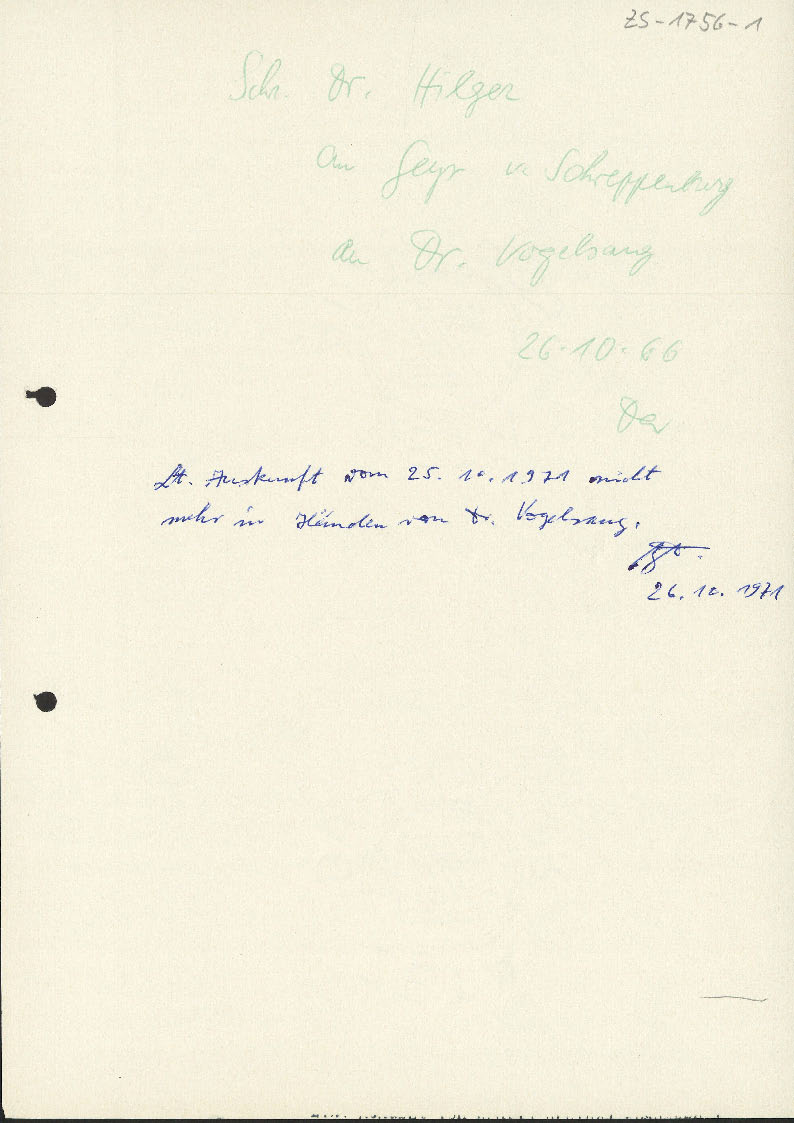 ZS-1756-1
Schr. Dr. Hilger
an Geyr v. Schweppenburg
an Dr. Vogelsang
26.10.66
Lt. Auskunft vom 25. 10. 1971 nicht
mehr in Händen von Dr. Vogelsang.
26. 10. 1971